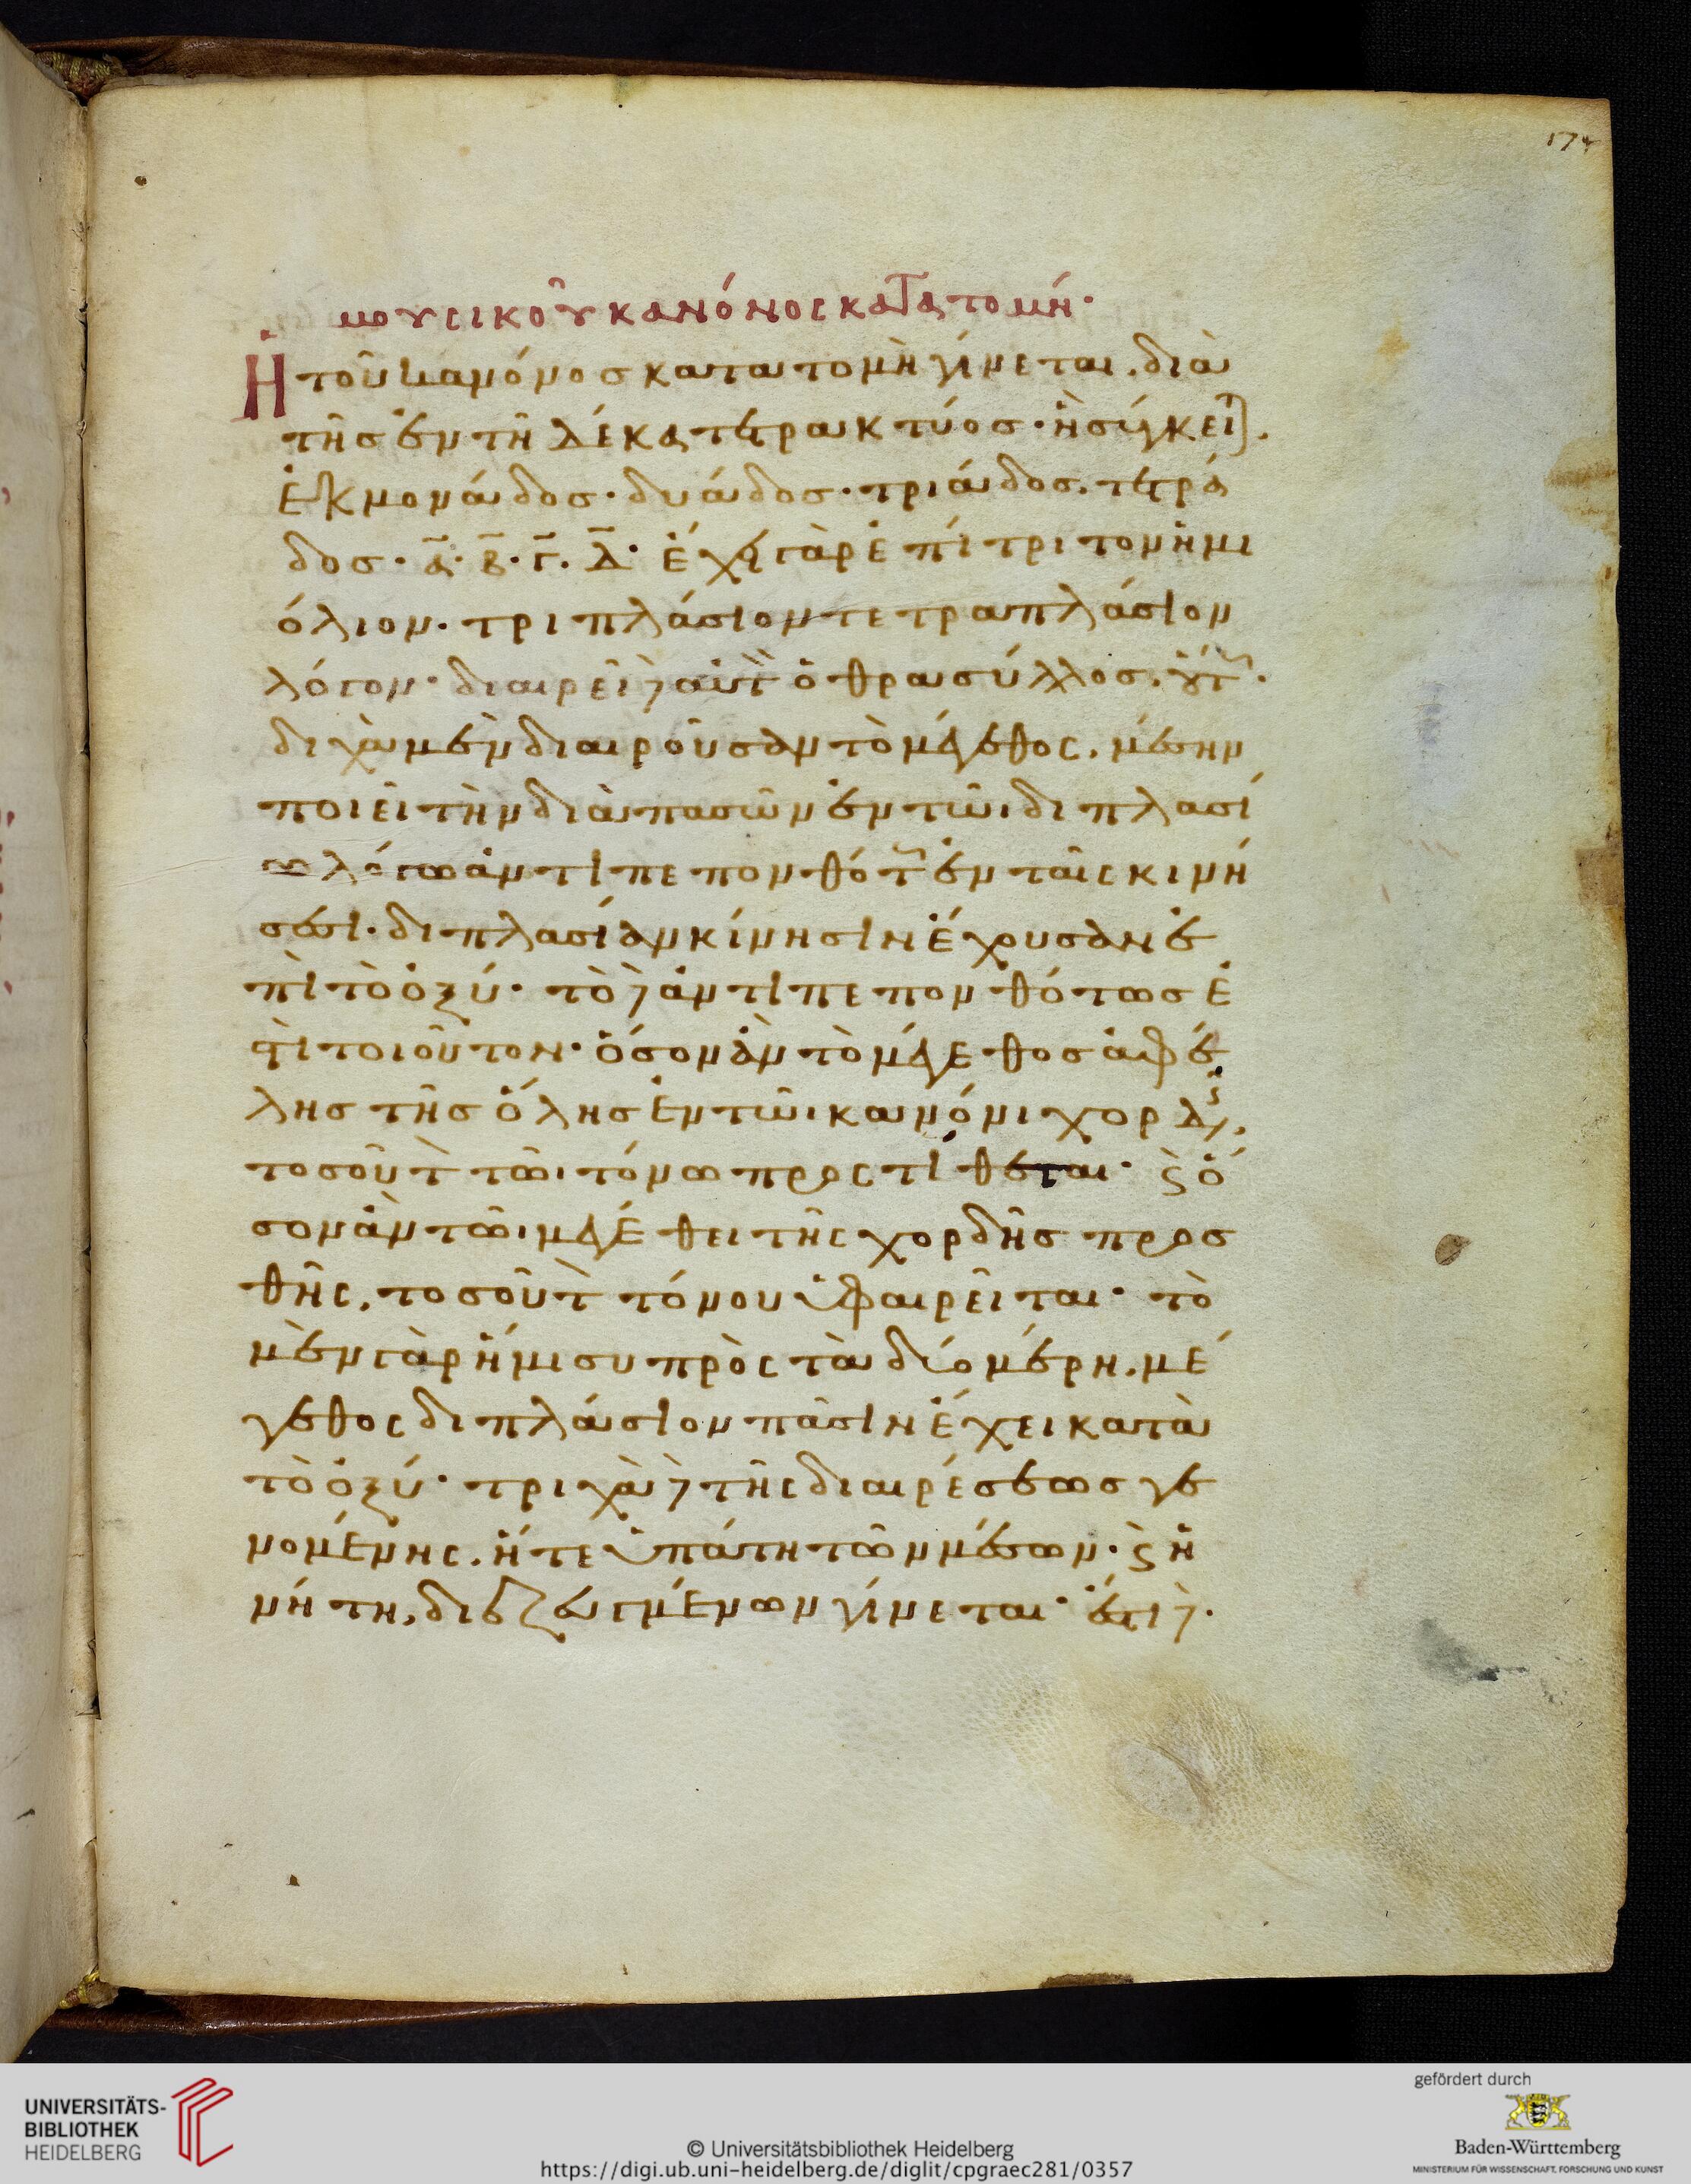 174
μουσικοῦ κανόνος κατατομή·
Ἡ τοῦ κανόνος κατατομὴ γίνεται. διὰ
τῆς ἐν τῆ δέκα τετρακτύος· ἣ σύγκει).
ἐκ μονάδος· δυάδος· τριάδος. τετρά
δος· α̅· β̅· γ̅· δ̅· ἔχει γὰρ ἐπίτριτον ἡμι
όλιον· τριπλάσιον τετραπλάσιον
λόγον· διαιρεῖ δ αὐτ ὁ θρασύλλος. οὕτ·
διχὰ μὲν διαιροῦσαν τὸ μέγεθος. μέσην
ποιεῖ τὴν διὰ πασῶν ἐν τῶι διπλασί
ω λόγω ἀντιπεπονθότ ἐν ταῖς κινή
σεσι· διπλασίαν κίνησιν ἔχουσαν ἐ
πὶ τὸ ὀξύ· τὸ δ ἀντιπεπονθότως ἐ
στὶ τοιοῦτον· ὅσον ἂν τὸ μέγεθος ἀφέ
λης τῆς ὅλης ἐν τῶι κανόνι χορδῆς,
τοσοῦτ τῶι τόνω προστίθεται· ϗ ὅ
σον ἂν τῶι μεγέθει τῆς χορδῆς προσ
θῆς, τοσοῦτ τόνου ὑφαιρεῖται· τὸ
μὲν γὰρ ἥμισυ πρὸς τὰ δύο μέρη. μέ
γεθος διπλάσιον πᾶσιν ἔχει κατὰ
τὸ ὀξύ· τριχὰ δ τῆς διαιρέσεως γε
νομένης. ἥ τε ὑπάτη τῶν μέσων· ϗ ἡ
νήτη, διεζευγμένων γίνεται· ἔστι δ.
UNIVERSITÄTS-
BIBLIOTHEK
HEIDELBERG
© Universitätsbibliothek Heidelberg
https://digi.ub.uni-heidelberg.de/diglit/cpgraec281/0357
gefördert durch
Baden-Württemberg
MINISTERIUM FÜR WISSENSCHAFT, FORSCHUNG UND KUNST